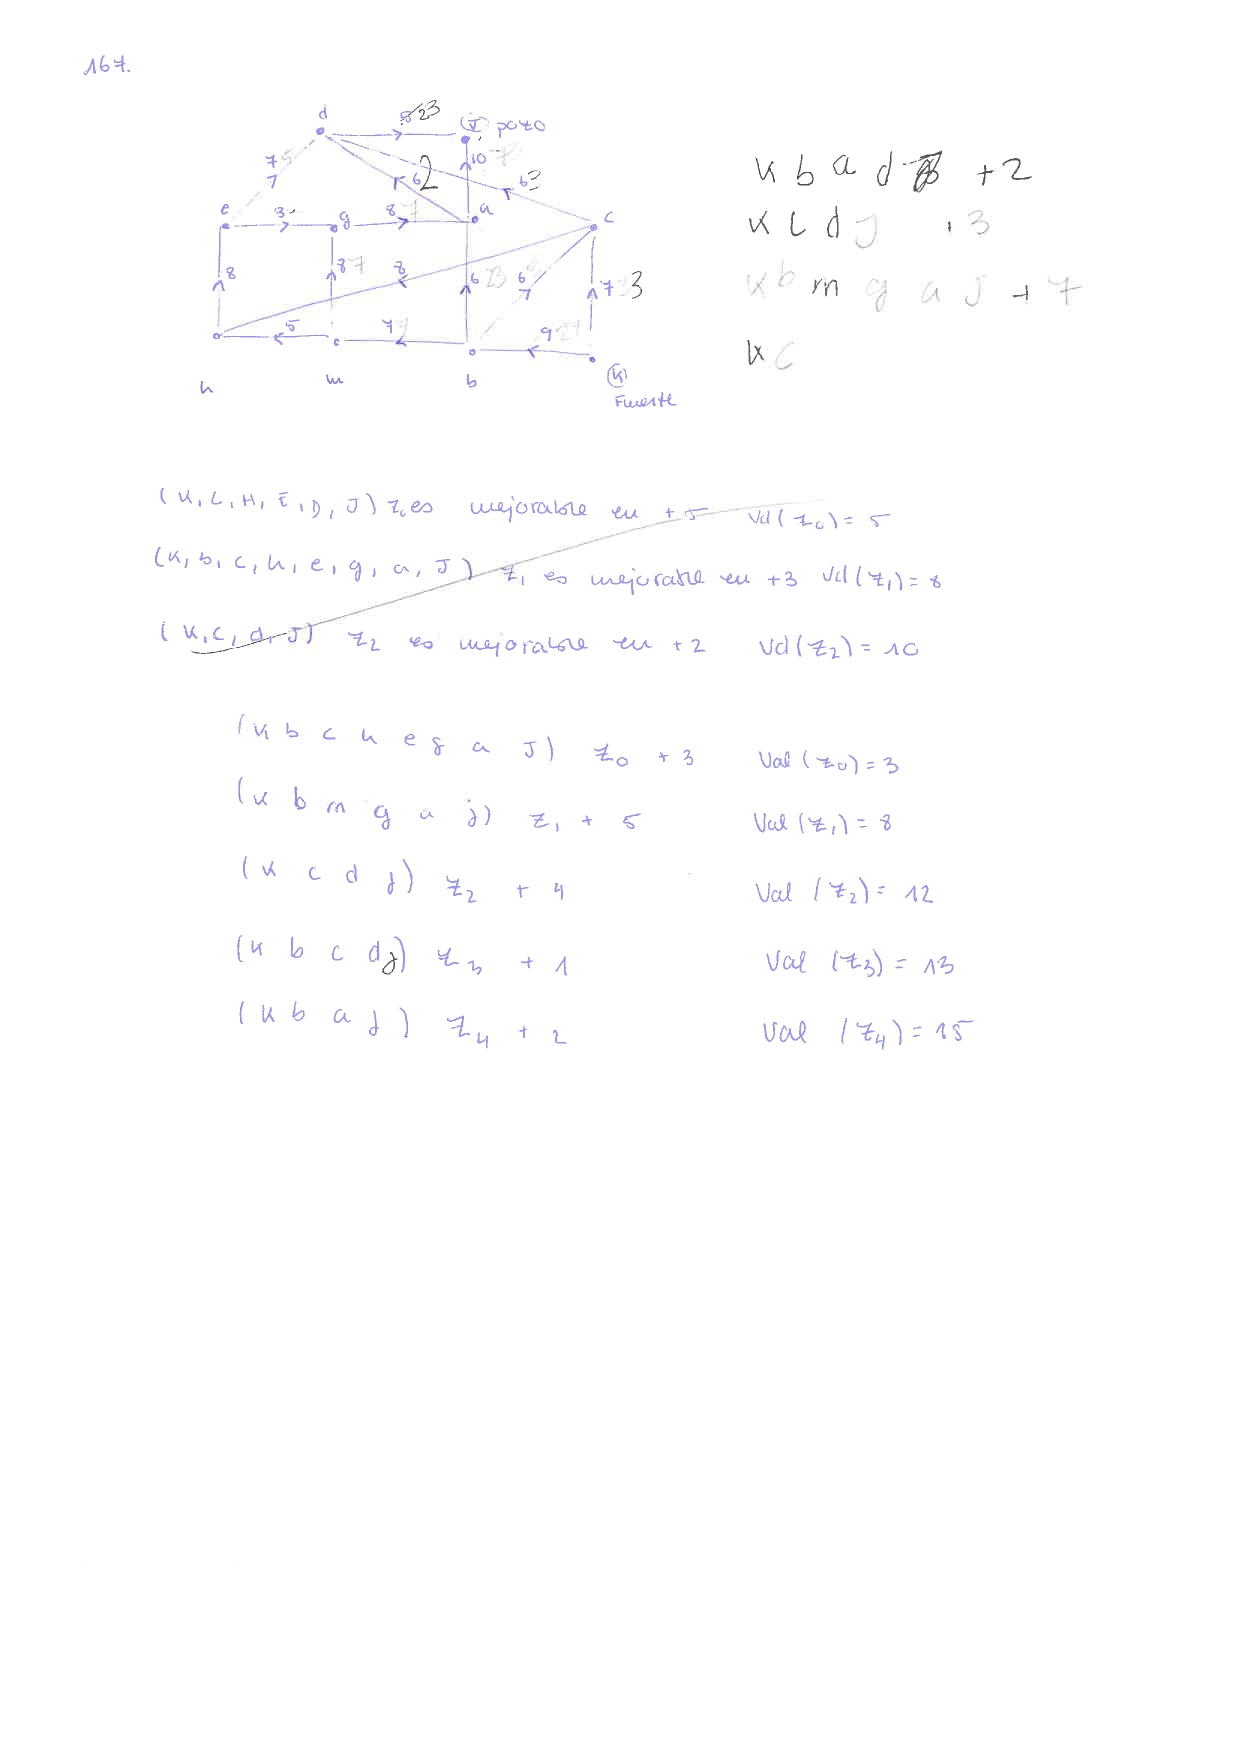 167.
d
8 23
(J) pozo
7 5
7
6 2
10 7
6 3
e
3
g
8 7
a
c
8
8 7
8
6 23
6
7
7 3
5
7 7
9 27
h
m
b
(K)
Fuente
K b a d +2
K C d J 3
K b m g a J + 7
K C
(K, C, H, E, D, J) z₀ es mejorable en +5 Val(z₀) = 5
(K, b, c, h, e, g, a, J) z₁ es mejorable en +3 Val(z₁) = 8
(K, C, d, J) z₂ es mejorable en +2 Val(z₂) = 10
(K b c h e g a J) z₀ + 3 Val (z₀) = 3
(K b m g a j) z₁ + 5 Val (z₁) = 8
(K c d j) z₂ + 4 Val (z₂) = 12
(K b c d j) z₃ + 1 Val (z₃) = 13
(K b a j) z₄ + 2 Val (z₄) = 15